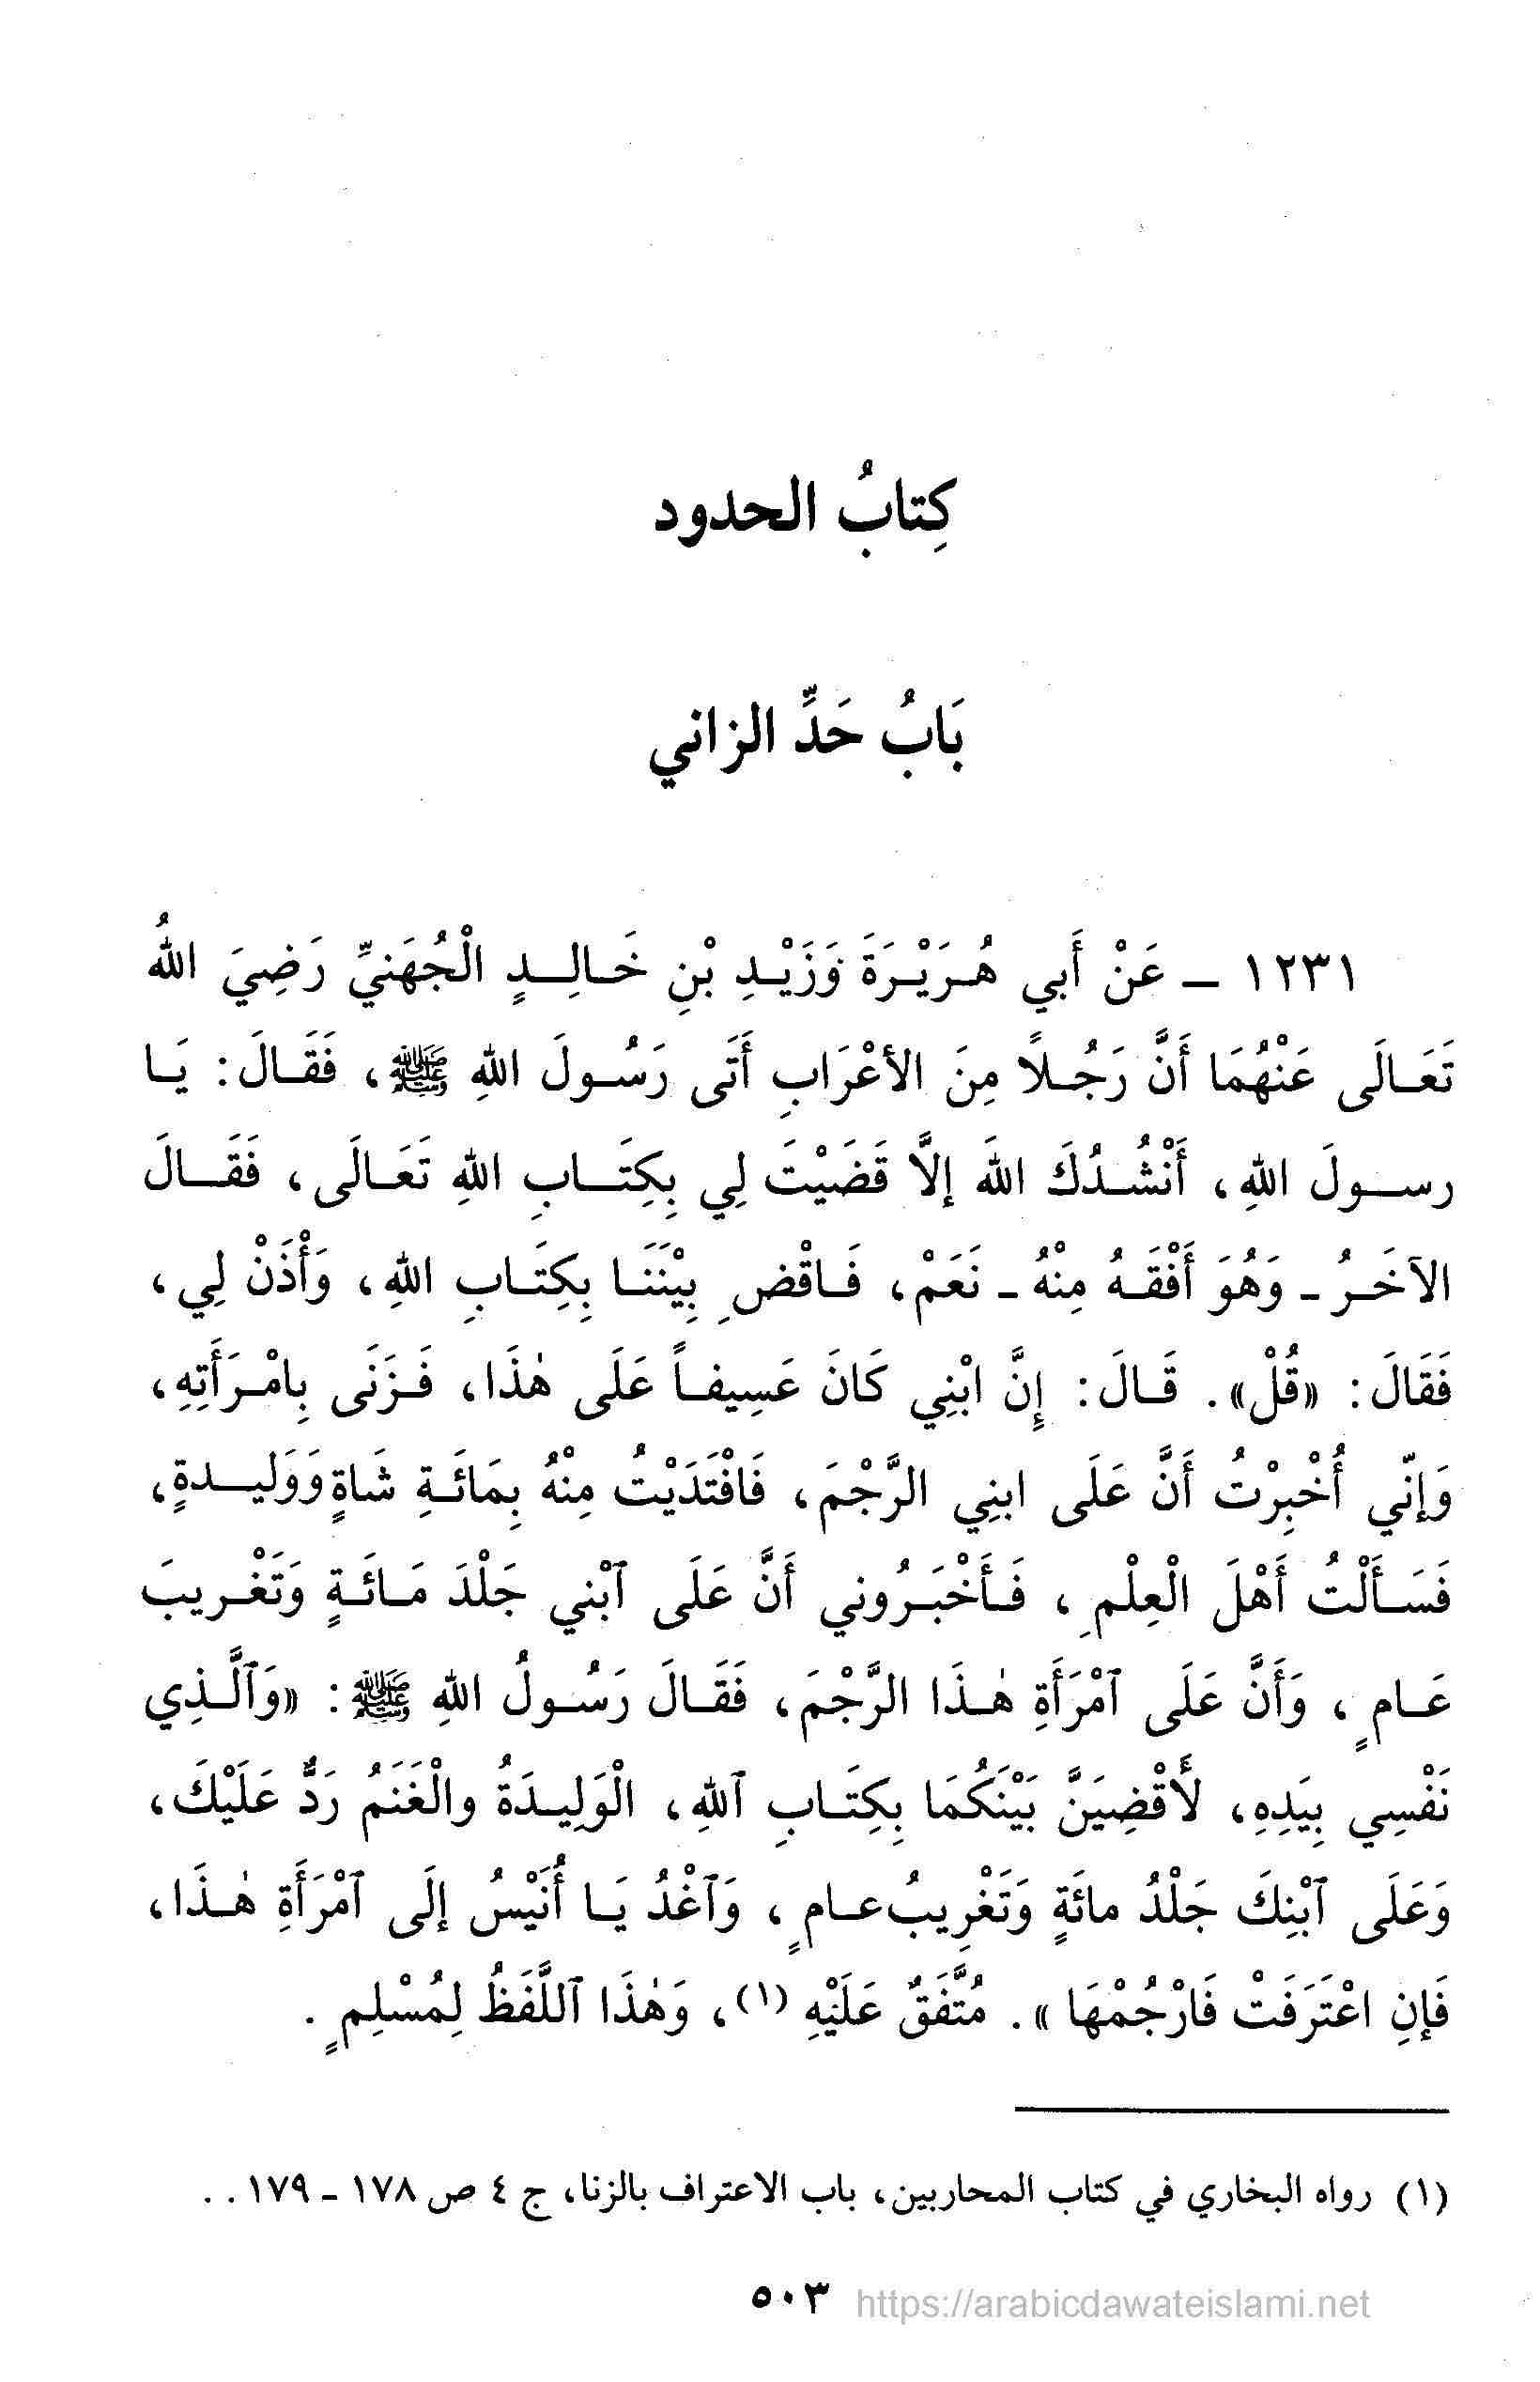 كِتابُ الحدود
بَابُ حَدِّ الزاني
١٢٣١ – عَنْ أَبي هُرَيْرَةَ وَزَيْدِ بْنِ خَالِدٍ الْجُهَنيِّ رَضِيَ اللهُ
تَعَالَى عَنْهُمَا أَنَّ رَجُلاً مِنَ الأعْرَابِ أَتَى رَسُولَ اللهِ ﷺ، فَقَالَ: يَا
رسولَ اللهِ، أَنْشُدُكَ اللهَ إلاَّ قَضَيْتَ لِي بِكِتَابِ اللهِ تَعَالَى، فَقَالَ
الآخَرُ - وَهُوَ أَفْقَهُ مِنْهُ - نَعَمْ، فَاقْضِ بِيْنَنَا بِكِتَابِ اللهِ، وَأْذَنْ لِي،
فَقَالَ: «قُلْ». قَالَ: إِنَّ ابْنِي كَانَ عَسِيفاً عَلَى هٰذَا، فَزَنَى بِامْرَأَتِهِ،
وَإنّي أُخْبِرْتُ أَنَّ عَلَى ابنِي الرَّجْمَ، فَافْتَدَيْتُ مِنْهُ بِمَائَةِ شَاةٍ وَوَليدةٍ،
فَسَأَلْتُ أَهْلَ الْعِلْمِ، فَأَخْبَرُوني أَنَّ عَلَى ٱبْني جَلْدَ مَائَةٍ وَتَغْريبَ
عَامٍ، وَأَنَّ عَلَى ٱمْرَأَةِ هٰذَا الرَّجْمَ، فَقَالَ رَسُولُ اللهِ ﷺ: «وَٱلَّذِي
نَفْسِي بِيَدِهِ، لَأَقْضِيَنَّ بَيْنَكُمَا بِكِتَابِ ٱللهِ، الْوَلِيدَةُ والْغَنَمُ رَدٌّ عَلَيْكَ،
وَعَلَى ٱبْنِكَ جَلْدُ مائَةٍ وَتَغْرِيبُ عامٍ، وَٱغْدُ يَا أُنَيْسُ إلَى ٱمْرَأَةِ هٰذَا،
فَإنِ اعْتَرَفَتْ فَارْجُمْهَا». مُتَّفَقٌ عَلَيْهِ (١)، وَهٰذَا ٱللَّفَظُ لِمُسْلِمٍ.
(١) رواه البخاري في كتاب المحاربين، باب الاعتراف بالزنا، ج ٤ ص ١٧٨ - ١٧٩ . .
٥٠٣ https://arabicdawateislami.net